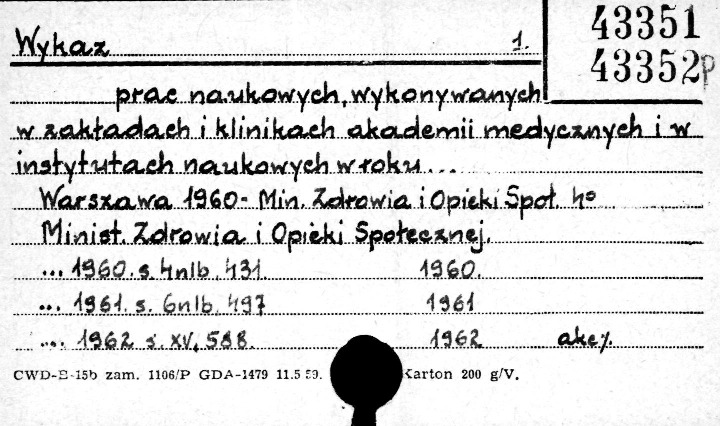 43351
43352p
Wykaz 1.
prac naukowych, wykonywanych
w zakładach i klinikach akademii medycznych i w
instytutach naukowych w roku...
Warszawa 1960- Min. Zdrowia i Opieki Społ. 4°
Minist. Zdrowia i Opieki Społecznej.
... 1960. s. 4nlb, 431. 1960.
... 1961. s. 6nlb, 497 1961
... 1962 s. XV, 588. 1962 akc.
CWD-E-15b zam. 1106/P GDA-1479 11.5 59. Karton 200 g/V.